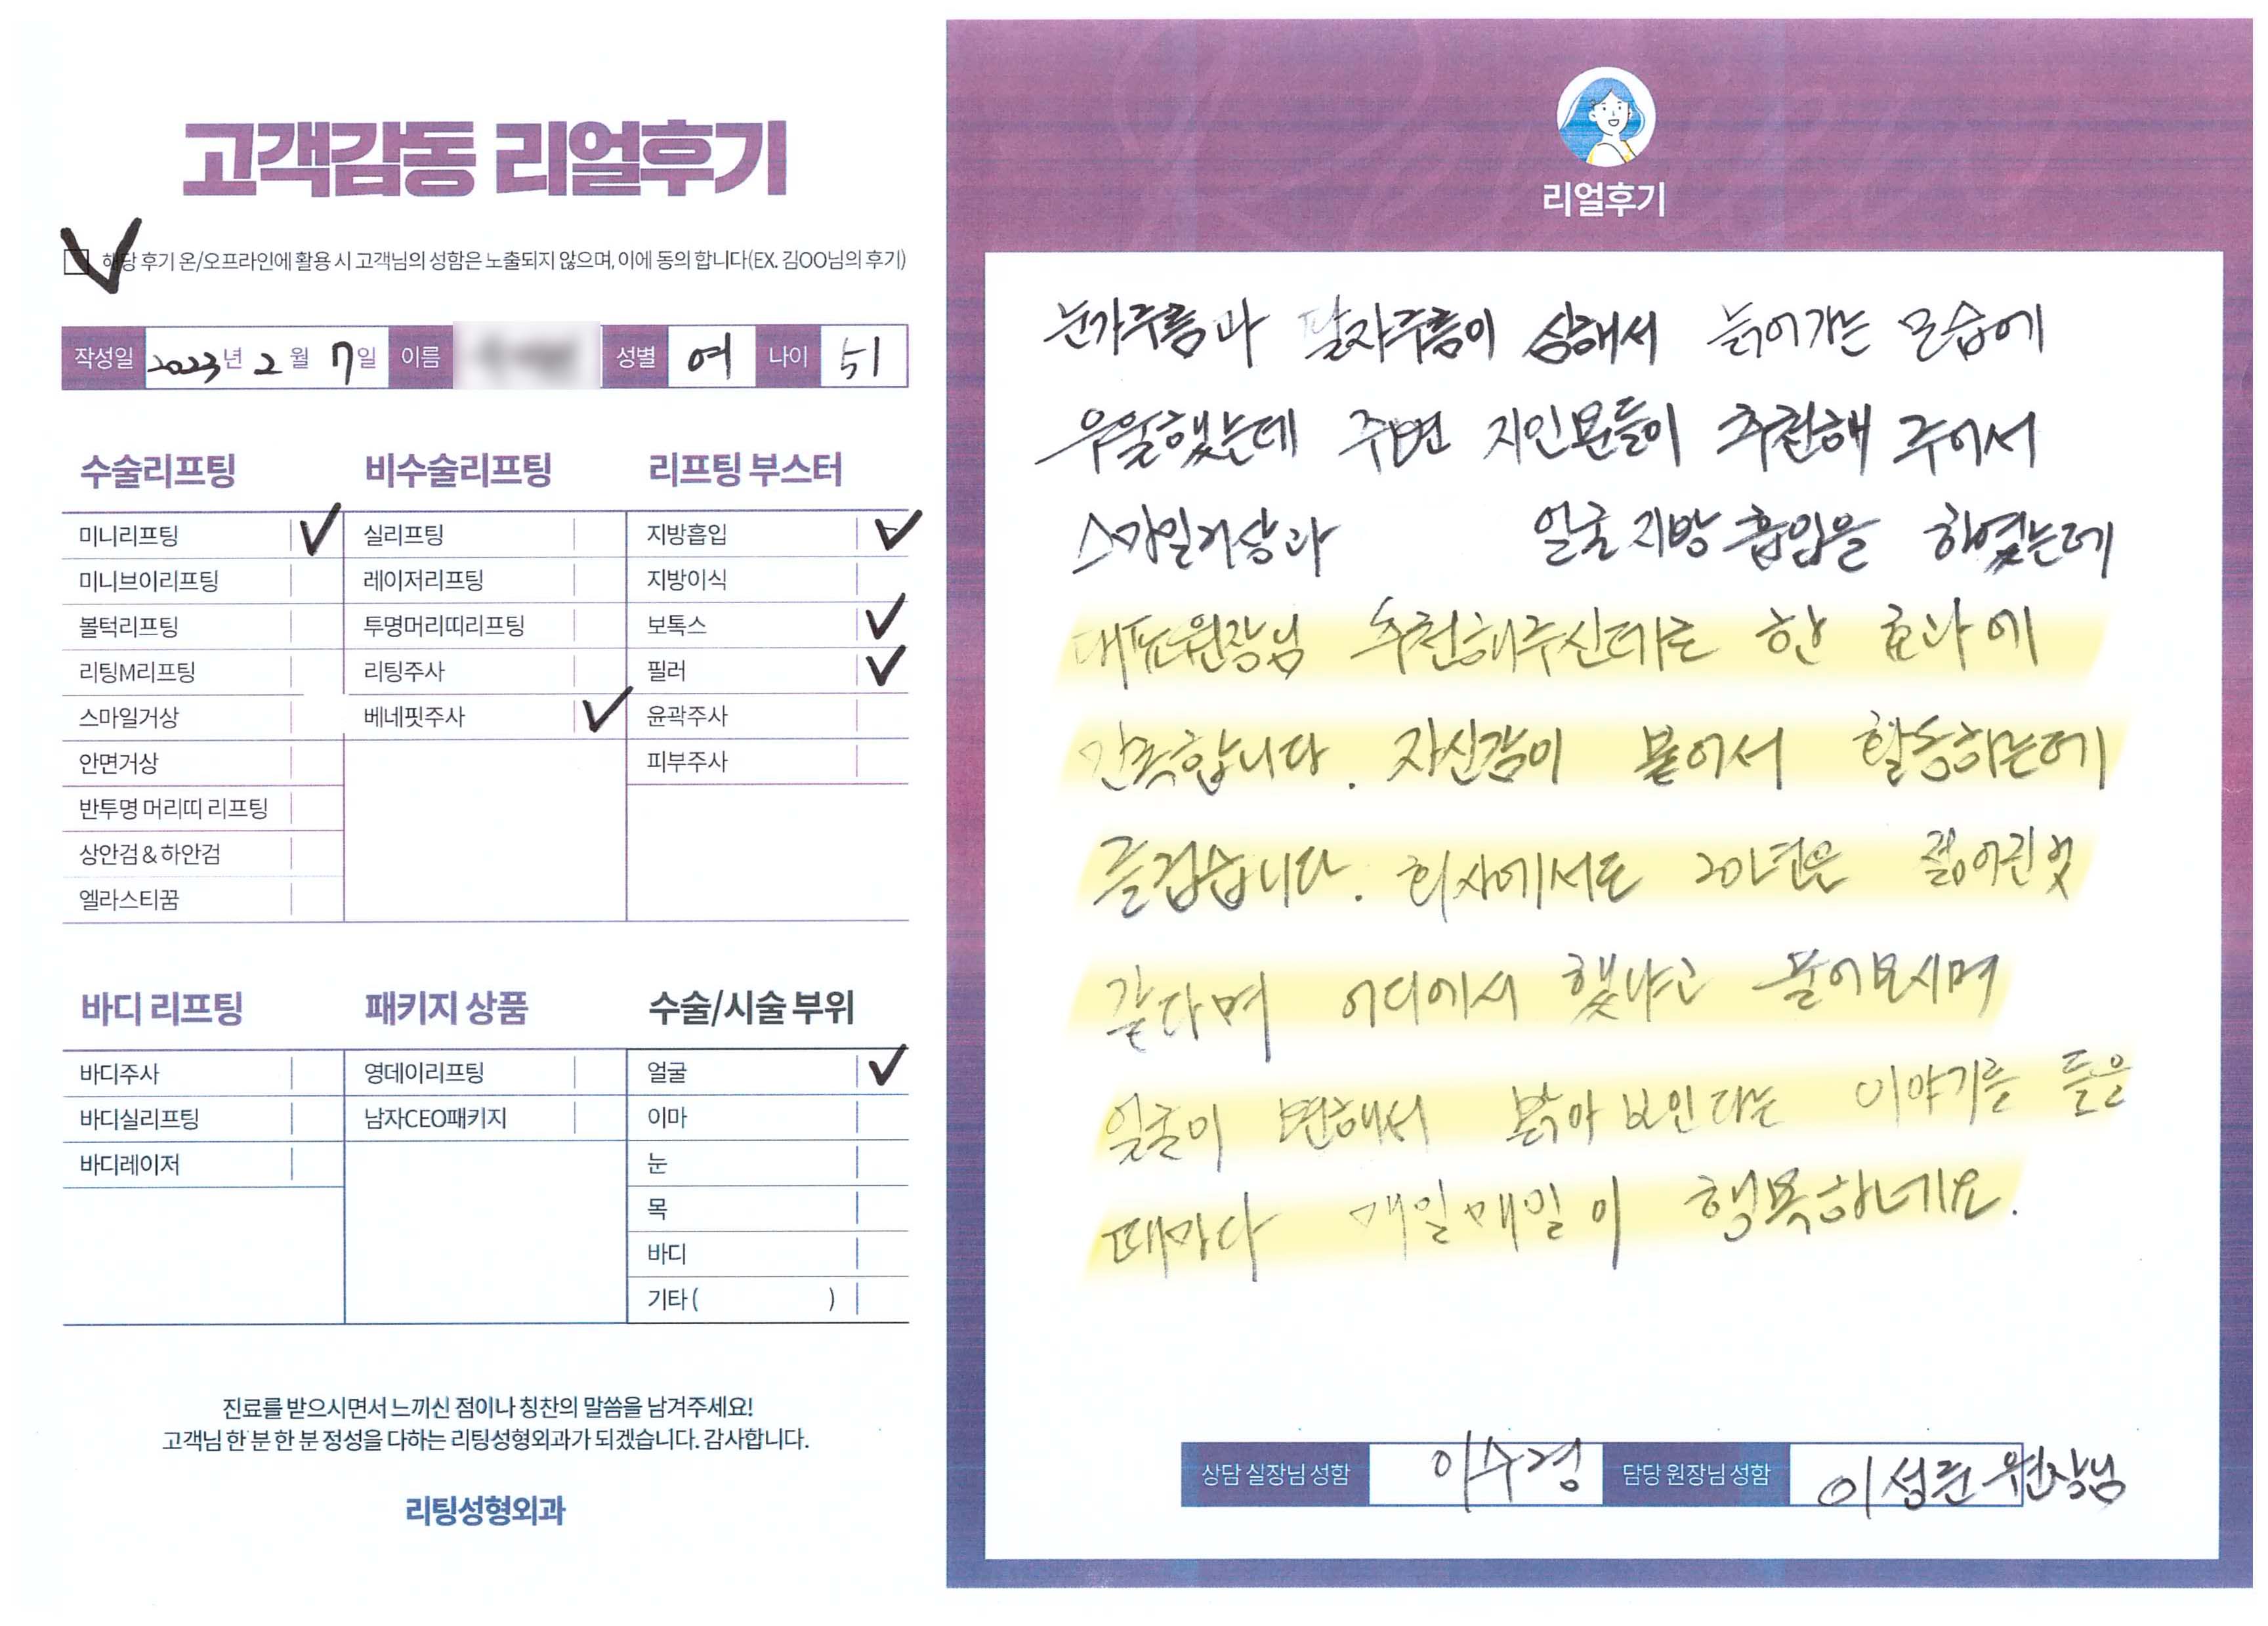 고객감동 리얼후기
해당 후기 온/오프라인에 활용 시 고객님의 성함은 노출되지 않으며, 이에 동의 합니다(EX. 김OO님의 후기)
작성일 2023년 2월 7일 이름 성별 여 나이 51
수술리프팅
미니리프팅
미니브이리프팅
볼턱리프팅
리팅M리프팅
스마일거상
안면거상
반투명 머리띠 리프팅
상안검 & 하안검
엘라스티꿈
비수술리프팅
실리프팅
레이저리프팅
투명머리띠리프팅
리팅주사
베네핏주사
리프팅 부스터
지방흡입
지방이식
보톡스
필러
윤곽주사
피부주사
바디 리프팅
바디주사
바디실리프팅
바디레이저
패키지 상품
영데이리프팅
남자CEO패키지
수술/시술 부위
얼굴
이마
눈
목
바디
기타 ( )
진료를 받으시면서 느끼신 점이나 칭찬의 말씀을 남겨주세요!
고객님 한 분 한 분 정성을 다하는 리팅성형외과가 되겠습니다. 감사합니다.
리팅성형외과
리얼후기
눈가주름과 팔자주름이 심해서 늙어가는 모습에
우울했는데 주변 지인분들이 추천해 주어서
스마일거상과 얼굴지방흡입을 하였는데
대표원장님 추천해주신데로 한 효과에
만족합니다. 자신감이 붙어서 활동하는데
즐겁습니다. 회사에서도 20년은 젊어진것
같다며 어디에서 했냐고 물어보시며
얼굴이 변해서 밝아보인다는 이야기를 들을
때마다 매일매일이 행복하네요.
상담 실장님 성함 이수경 담당 원장님 성함 이성준 원장님